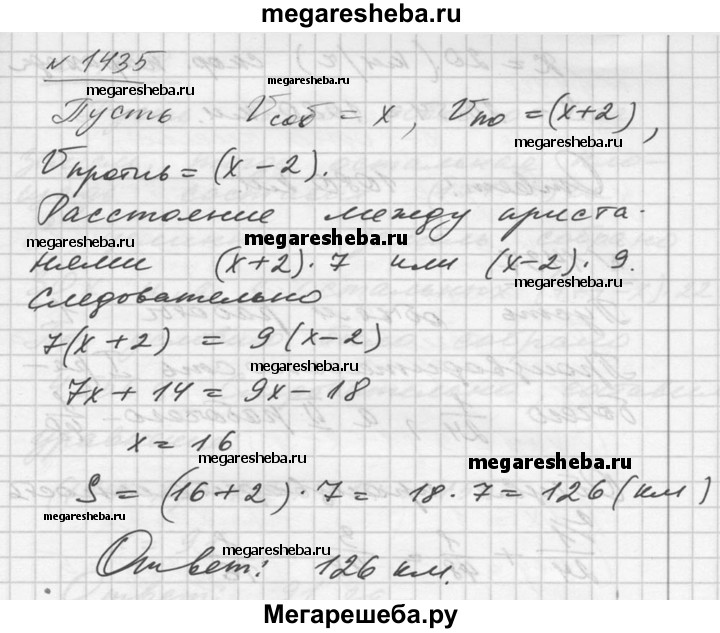 megaresheba.ru
№ 1435
megaresheba.ru
megaresheba.ru
Пусть Vсоб = x, Vпо = (x+2),
megaresheba.ru
Vпротив = (x − 2).
Расстояние между приста-
megaresheba.ru
megaresheba.ru
нями (x+2)·7 или (x−2)·9.
megaresheba.ru
Следовательно
7(x+2) = 9(x−2)
megaresheba.ru
7x + 14 = 9x − 18
x = 16
megaresheba.ru
megaresheba.ru
S = (16+2)·7 = 18·7 = 126 (км)
megaresheba.ru
megaresheba.ru
Ответ: 126 км.
megaresheba.ru
Мегарешеба.ру